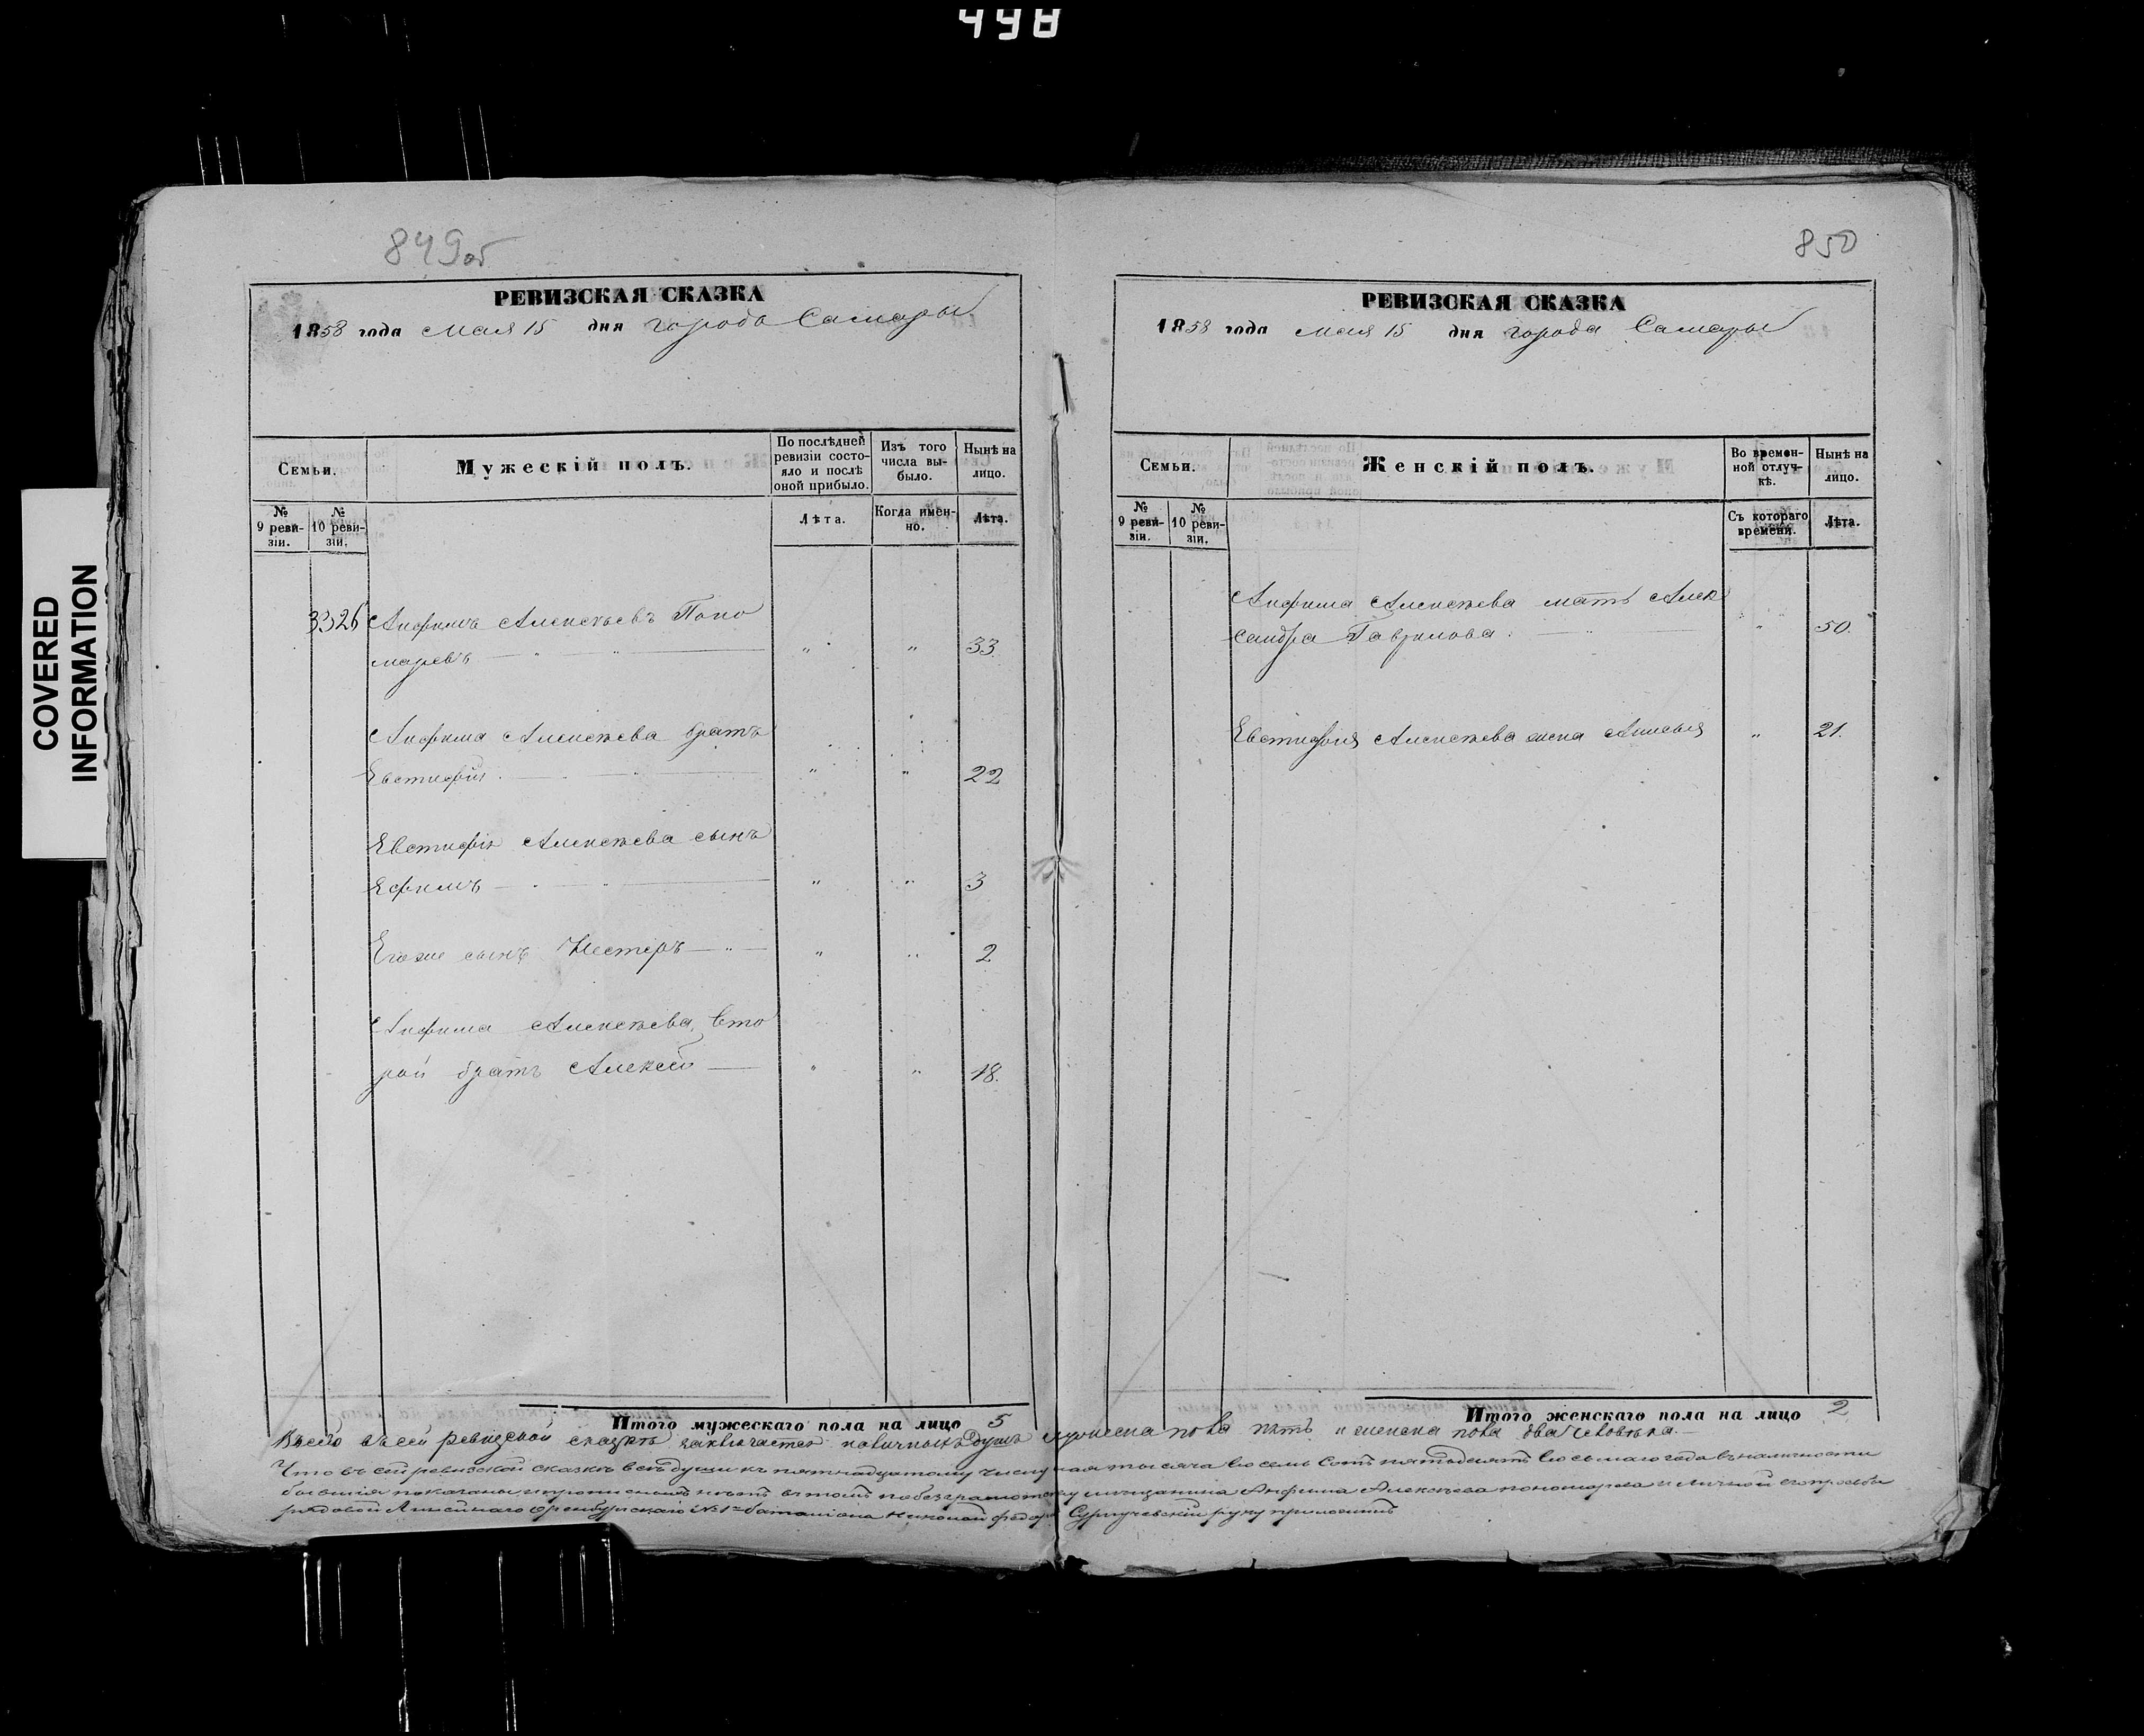 498
COVERED
INFORMATION
849об
РЕВИЗСКАЯ СКАЗКА
1858 года Мая 15 дня города Самары
Семьи.
Мужескій полъ.
По послѣдней ревизіи состо-яло и послѣ оной прибыло.
Изъ того числа вы-было.
Нынѣ на лицо.
№ 9 реви-зіи.
№ 10 реви-зіи.
Лѣта.
Когда имен-но.
Лѣта.
3326 Анфимъ Алексѣевъ Поно
маревъ — " — " — " " 33
Анфима Алексѣева братъ
Евстифій — " — " " 22
Евстифія Алексѣева сынъ
Ефимъ — " — " " 3
Егоже сынъ Нестеръ — " — " " 2
Анфима Алексѣева, вто
рой братъ Алексей — " " 18.
Итого мужескаго пола на лицо 5
850
РЕВИЗСКАЯ СКАЗКА
1858 года Мая 15 дня города Самары
Семьи.
Женскій полъ.
Во времен-ной отлуч-кѣ.
Нынѣ на лицо.
№ 9 реви-зіи.
№ 10 реви-зіи.
Съ котораго времени.
Лѣта.
Анфима Алексѣева мать Алек
сандра Гаврилова. — " — " 50.
Евстифія Алексѣева жена Анисья " 21.
Итого женскаго пола на лицо 2
Всего въ сей ревизской сказкѣ заключается наличныхъ душъ мужеска пола пять и женска пола два человѣка.—
Что въ сей ревизской сказкѣ всѣ души къ пятнадцатому числу мая тысяча восемь сотъ пятьдесятъ восьмаго года въ наличности
бывшія показаны и прописныхъ нѣтъ въ томъ по безграмотству мещанина Анфима Алексѣева Пономарева и личной его прозьбы
рядовой Линейнаго Оренбургскаго № 1го баталіона Сургучевскій руку приложилъ